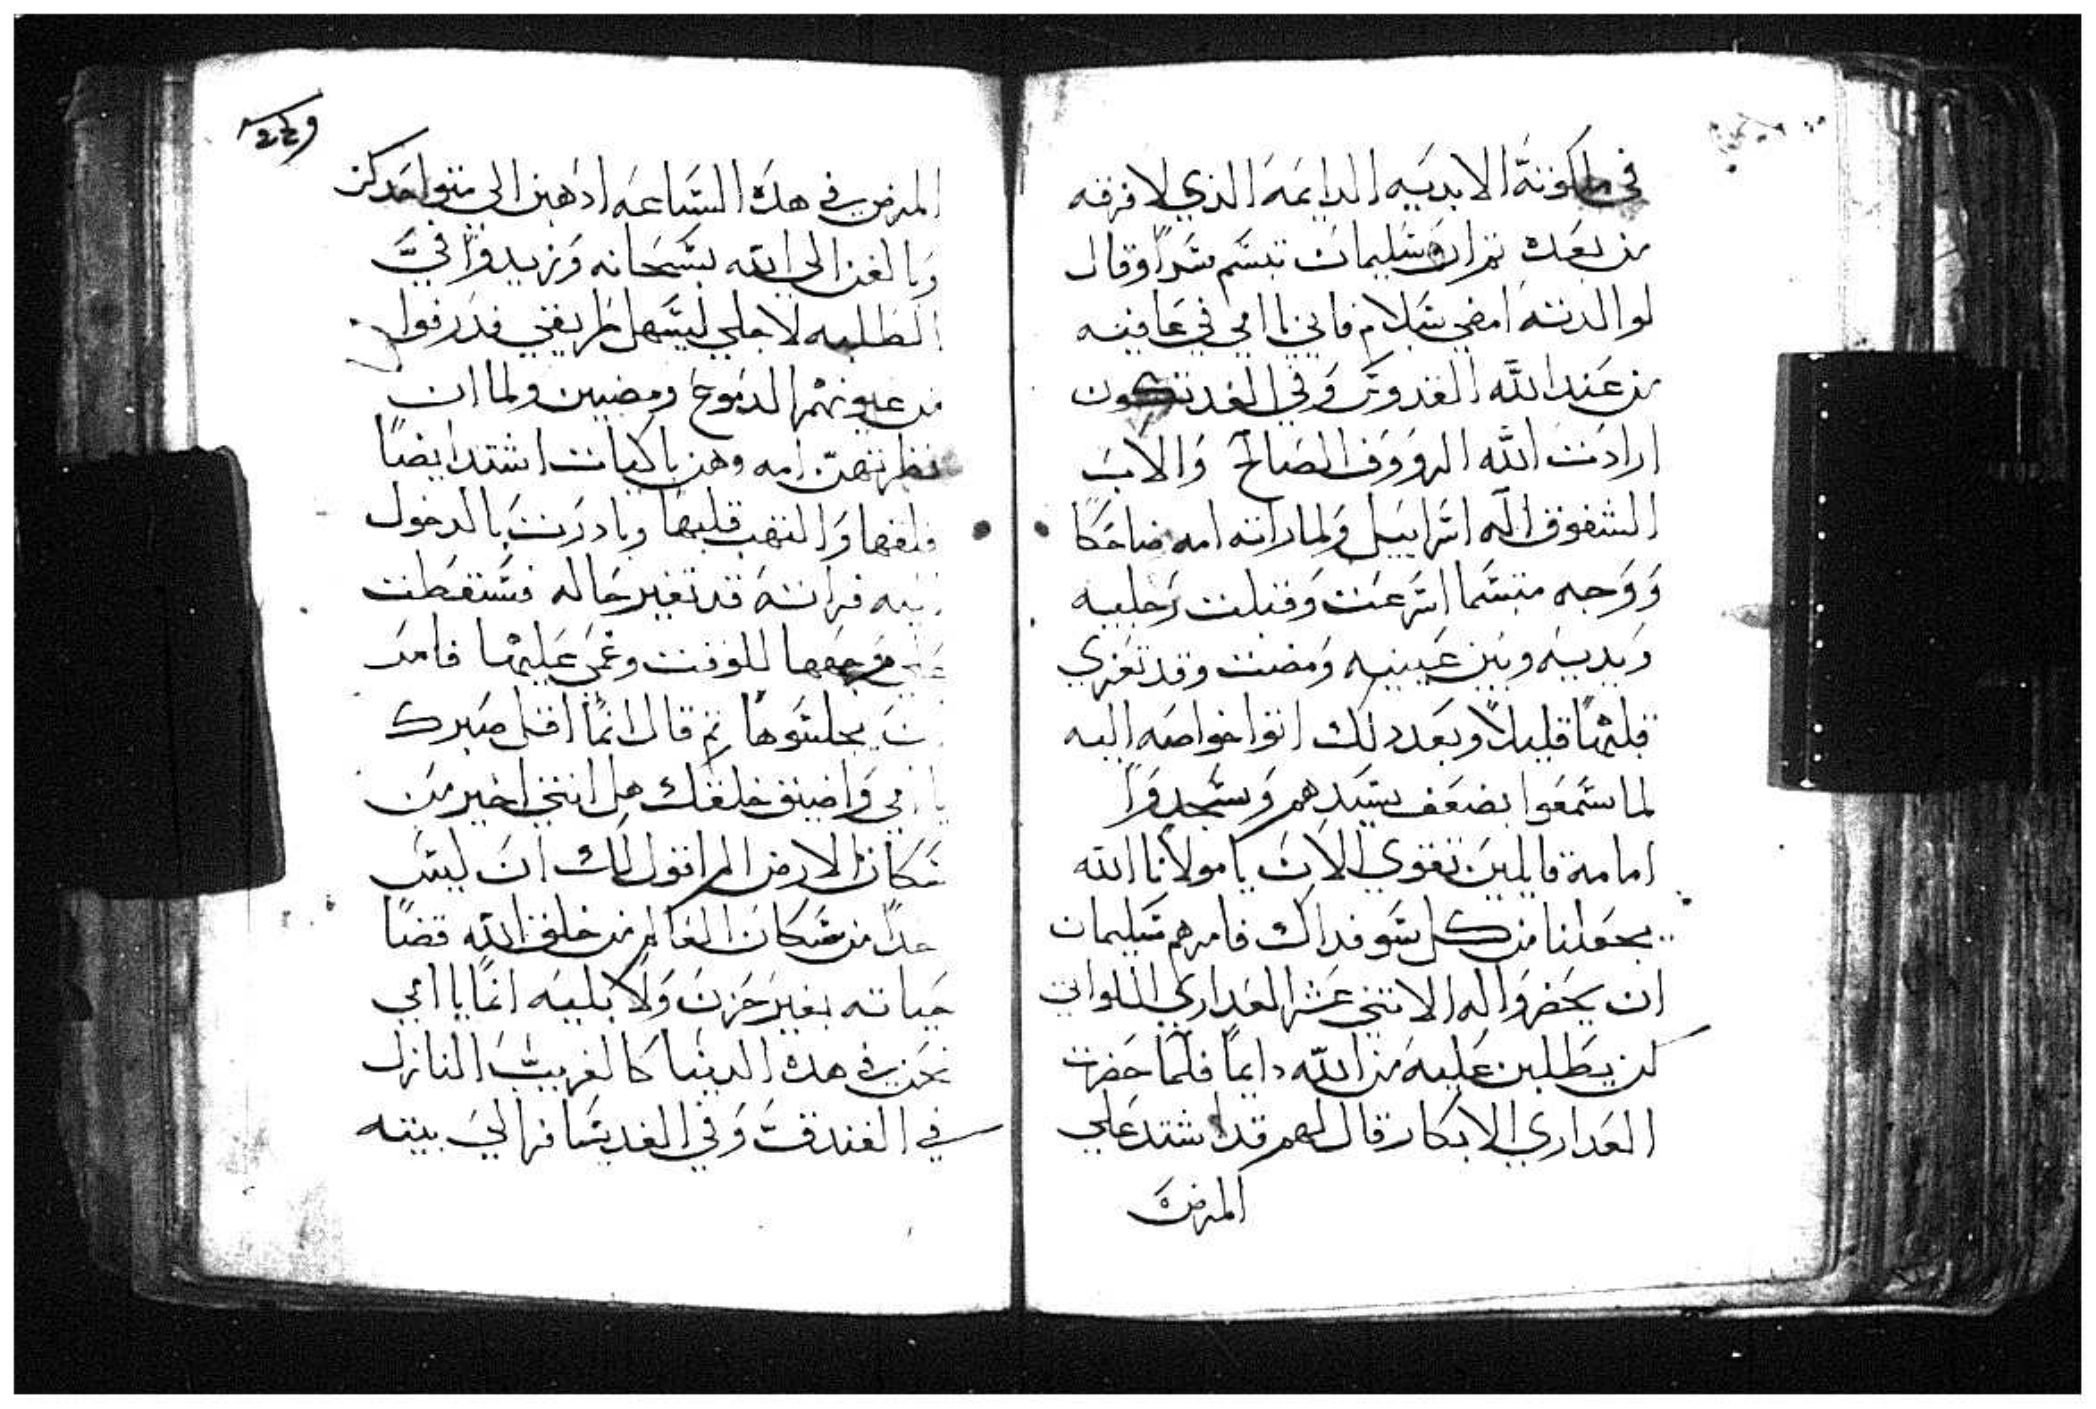 في ملكوته الابديه الدايمه الذي لا فرقه
من بعده ثم ان سليمان تبسم سرا وقال
لوالدته امضي بسلام فاني يا امي في عافيه
من عند الله القدوس وفي الغد تكون
ارادت الله الرووف الصالح والاب
الشفوق اله اسراييل ولما راته امه ضاحكا
ووجه متبسما اسرعت وقبلت رجليه
ويديه وبين عينيه ومضت وقد تعزي
قلبها قليلا وبعد دلك اتوا خواصه اليه
لما سمعوا بضعف سيدهم وسجدوا
امامه قايلين تقوي الان يا مولانا الله
يجعلنا من كل سو فداك فامرهم سليمان
ان يحضروا له الاتني عشر العداري اللواتي
كن يطلبن عليه من الله دايما فلما حضرت
العداري الابكار قال لهم قد اشتد علي
المرض
المرض في هده الساعه ادهبن الي متوا
وبالغن الي الله سبحانه وزيدوا في
الطلبه لاجلي ليسهل طريقي فدرفوا
من عيونهم الدموع ومضيين ولما ان
نظرتهن امه وهن باكيات اشتد ايضا
قلقها والتهب قلبها وبادرت بالدخول
فراته قد تغير حاله فسقطت
للوقت وغمي عليها فامر
يجلسوها ثم قال انما اقل صبرك
يا امي واضيق خلقك هل انتي اخير من
سكان الارض الم اقول لك ان ليس
احدا من سكان العالم من خلق الله قضا
حياته بغير حزن ولا بليه انما يا امي
نحن في هده الدنيا كالغريب النازل
في الفندق وفي الغد يسافر الي بيته